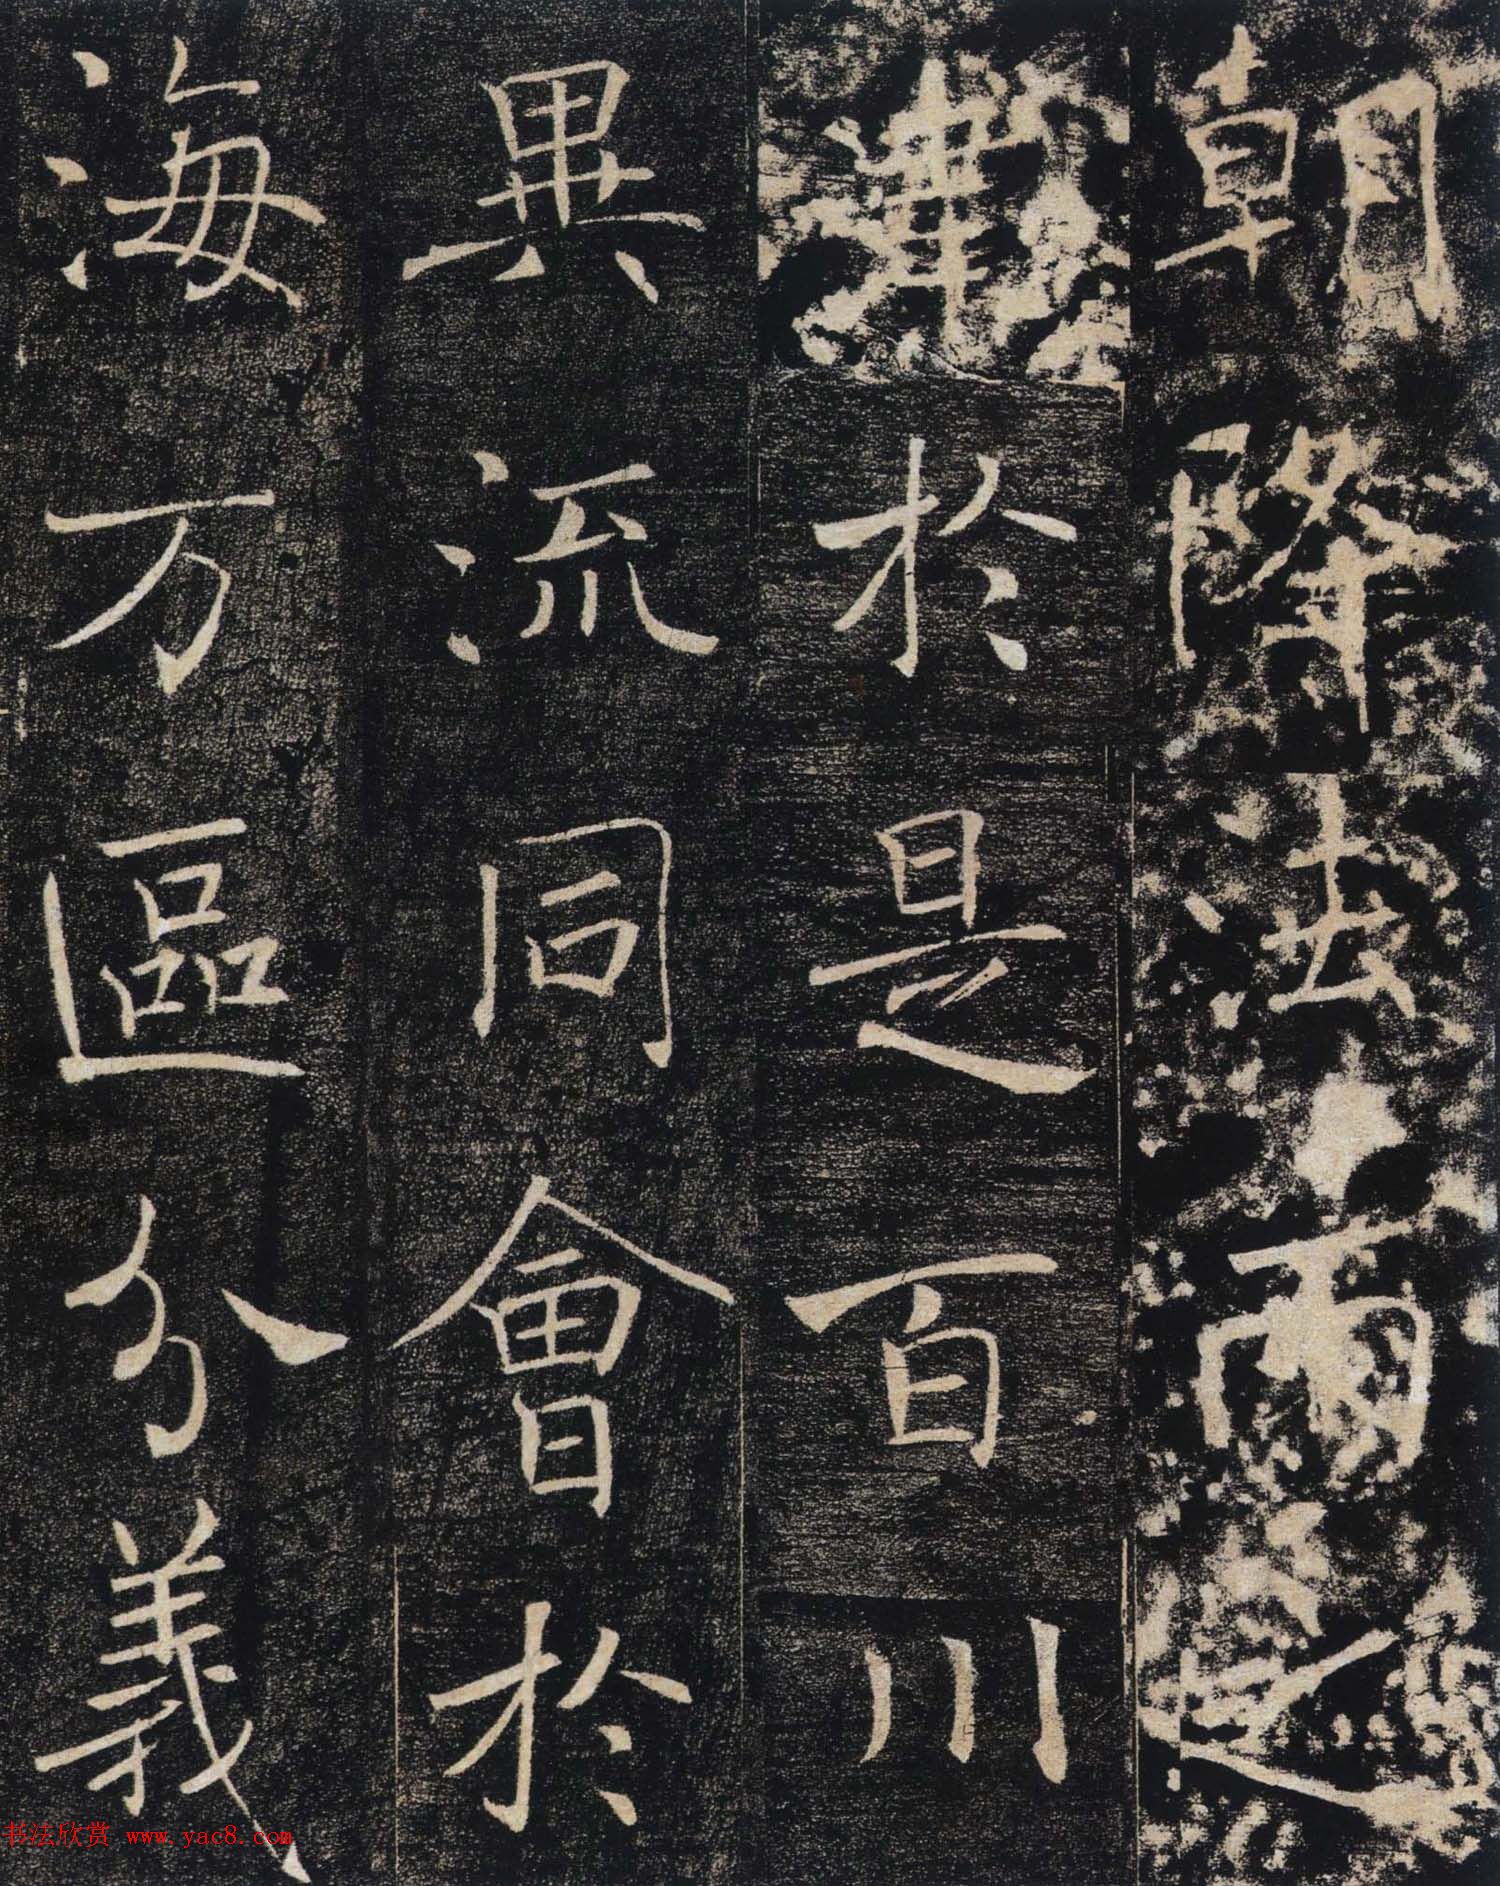 朝降法雨之
澤於是百川
異流同會於
海万區分義
书法欣赏 www.yac8.com